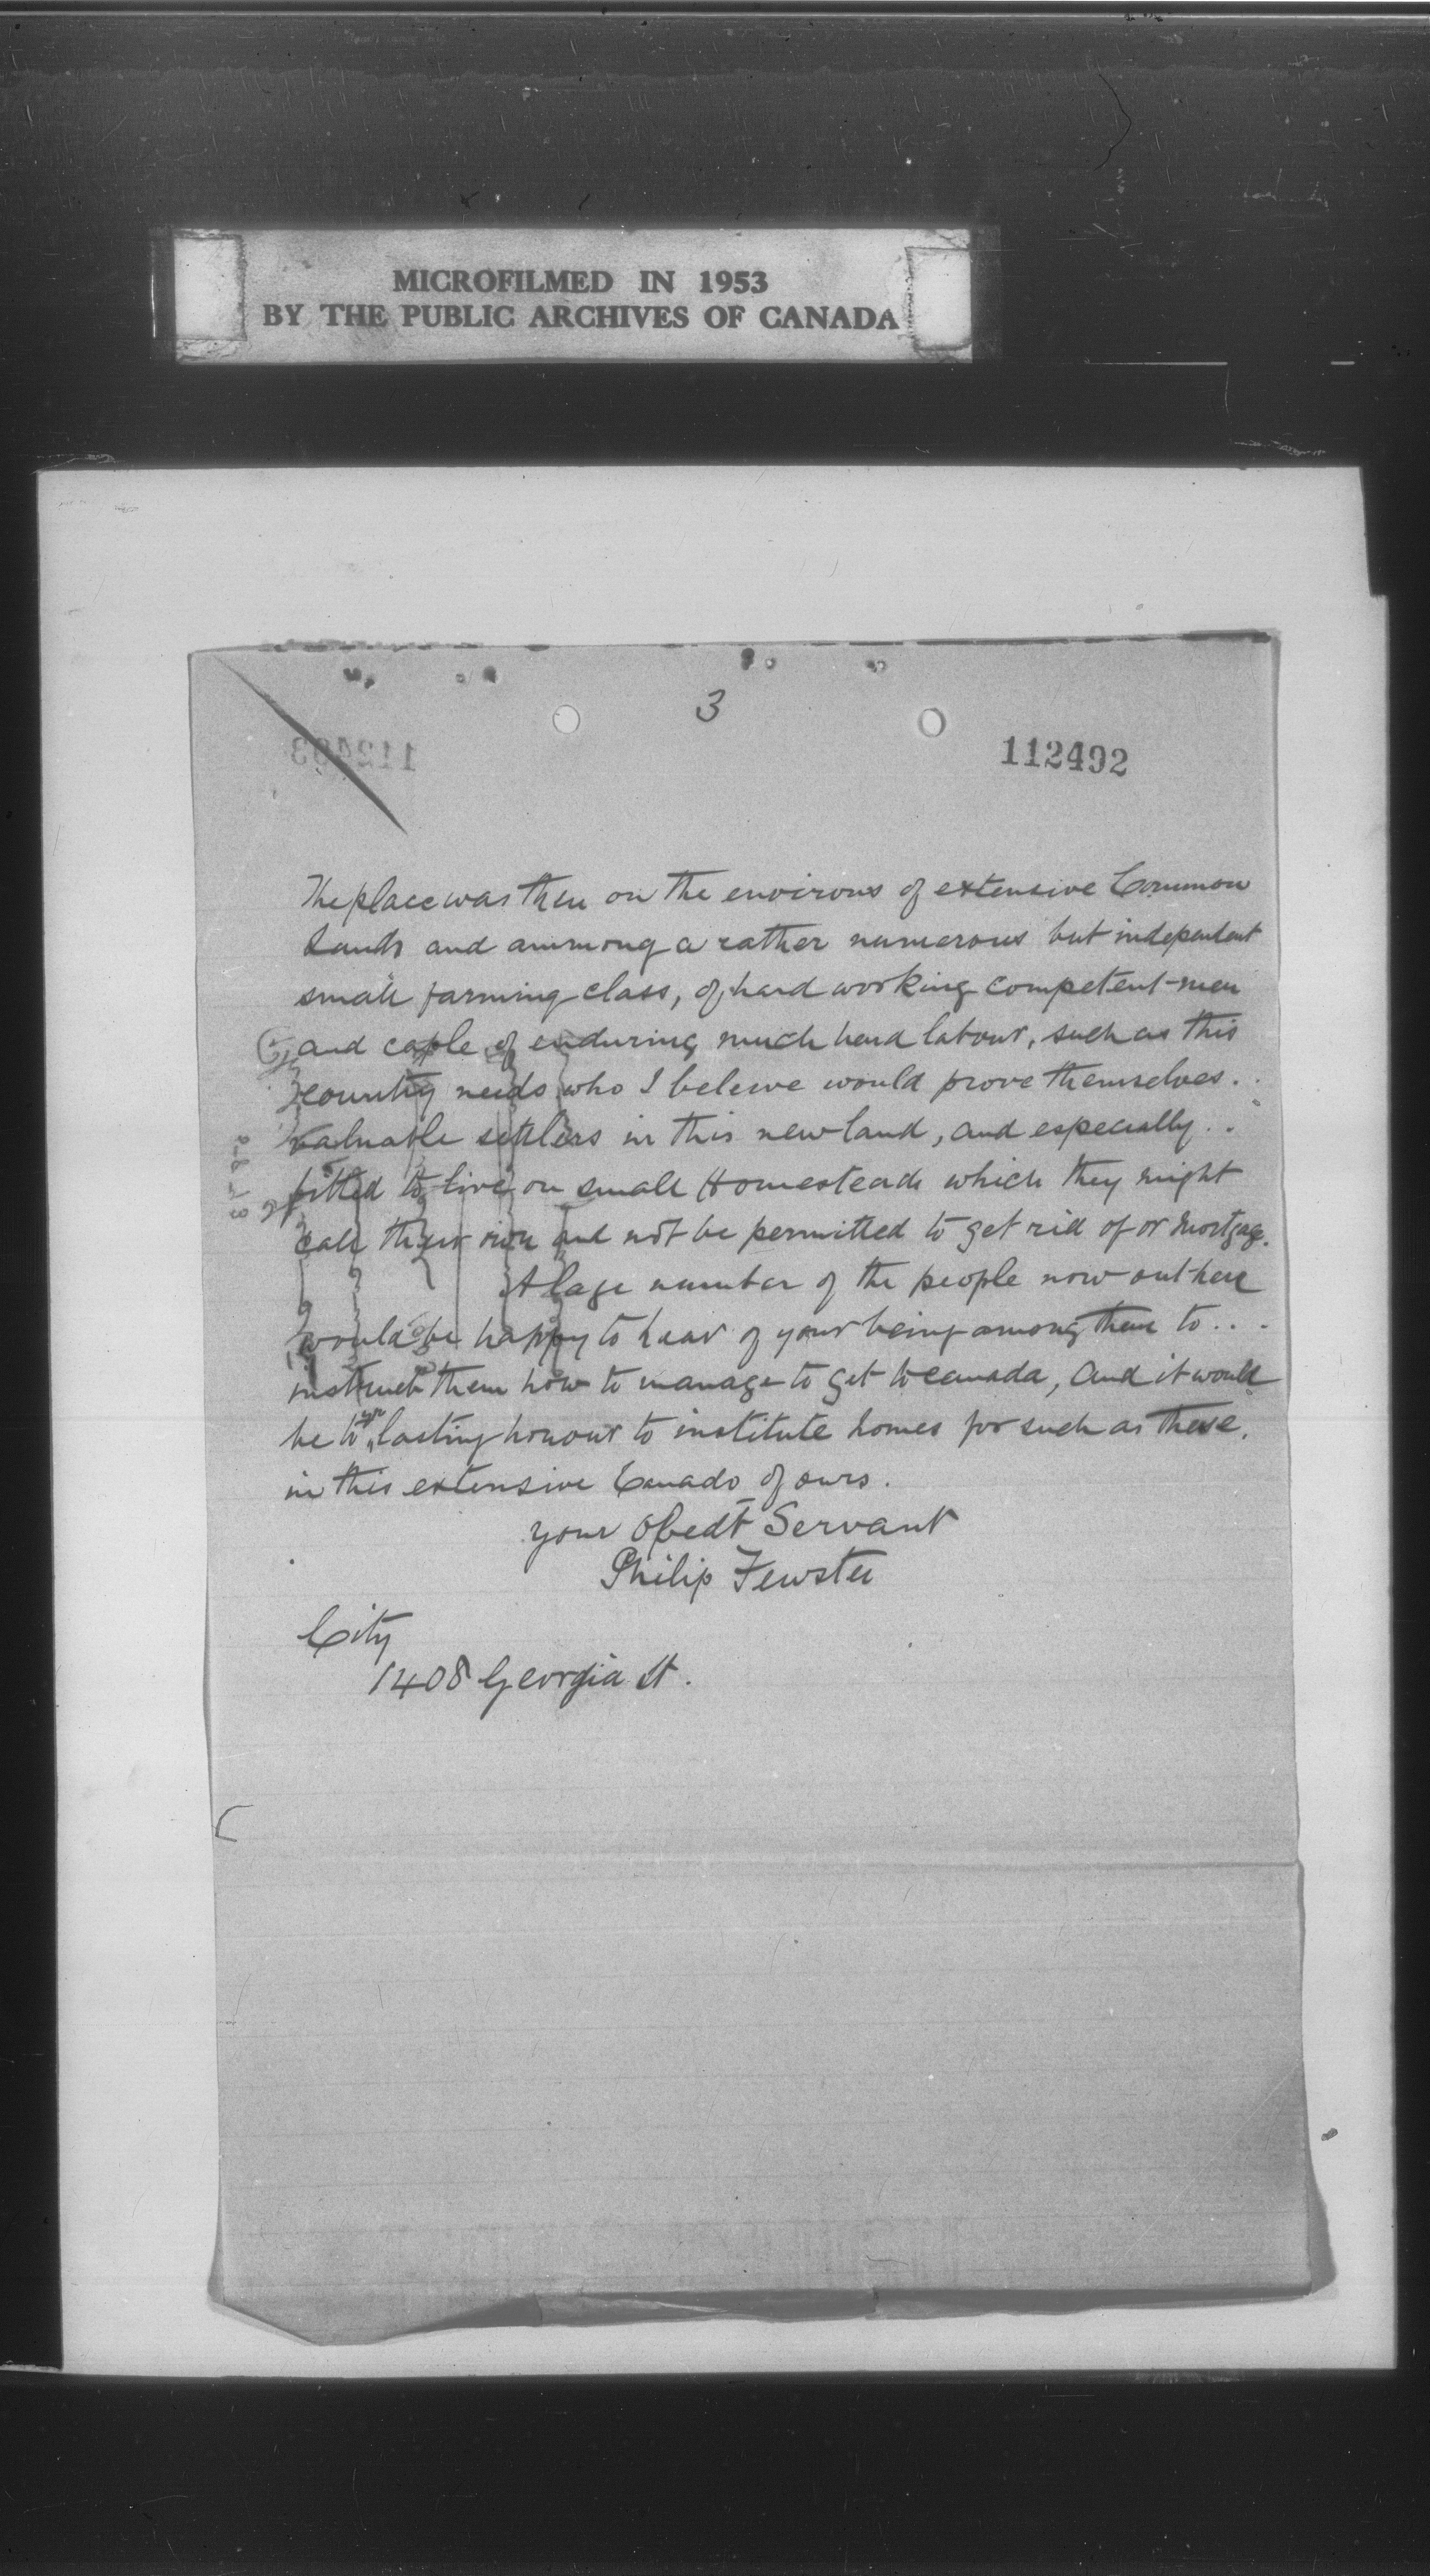 MICROFILMED IN 1953
BY THE PUBLIC ARCHIVES OF CANADA
3
112492
The place was then on the environs of extensive Common
Lands and ammong a rather numerous but independent
small farming class, of hard working competent men
and caple of enduring much hard labour, such as this
country needs who I beleive would prove themselves.
valuable settlers in this new land, and especially..
fitted to live on small Homesteads which they might
call their own and not be permitted to get rid of or mortgage.
A lage number of the people now out here
would be happy to hear of your being among them to...
instruct them how to manage to get to Canada, and it would
be to yr lasting honour to institute homes for such as these,
in this extensive Canada of ours.
your Obedt Servant
Philip Fewster
City
1408 Georgia St.